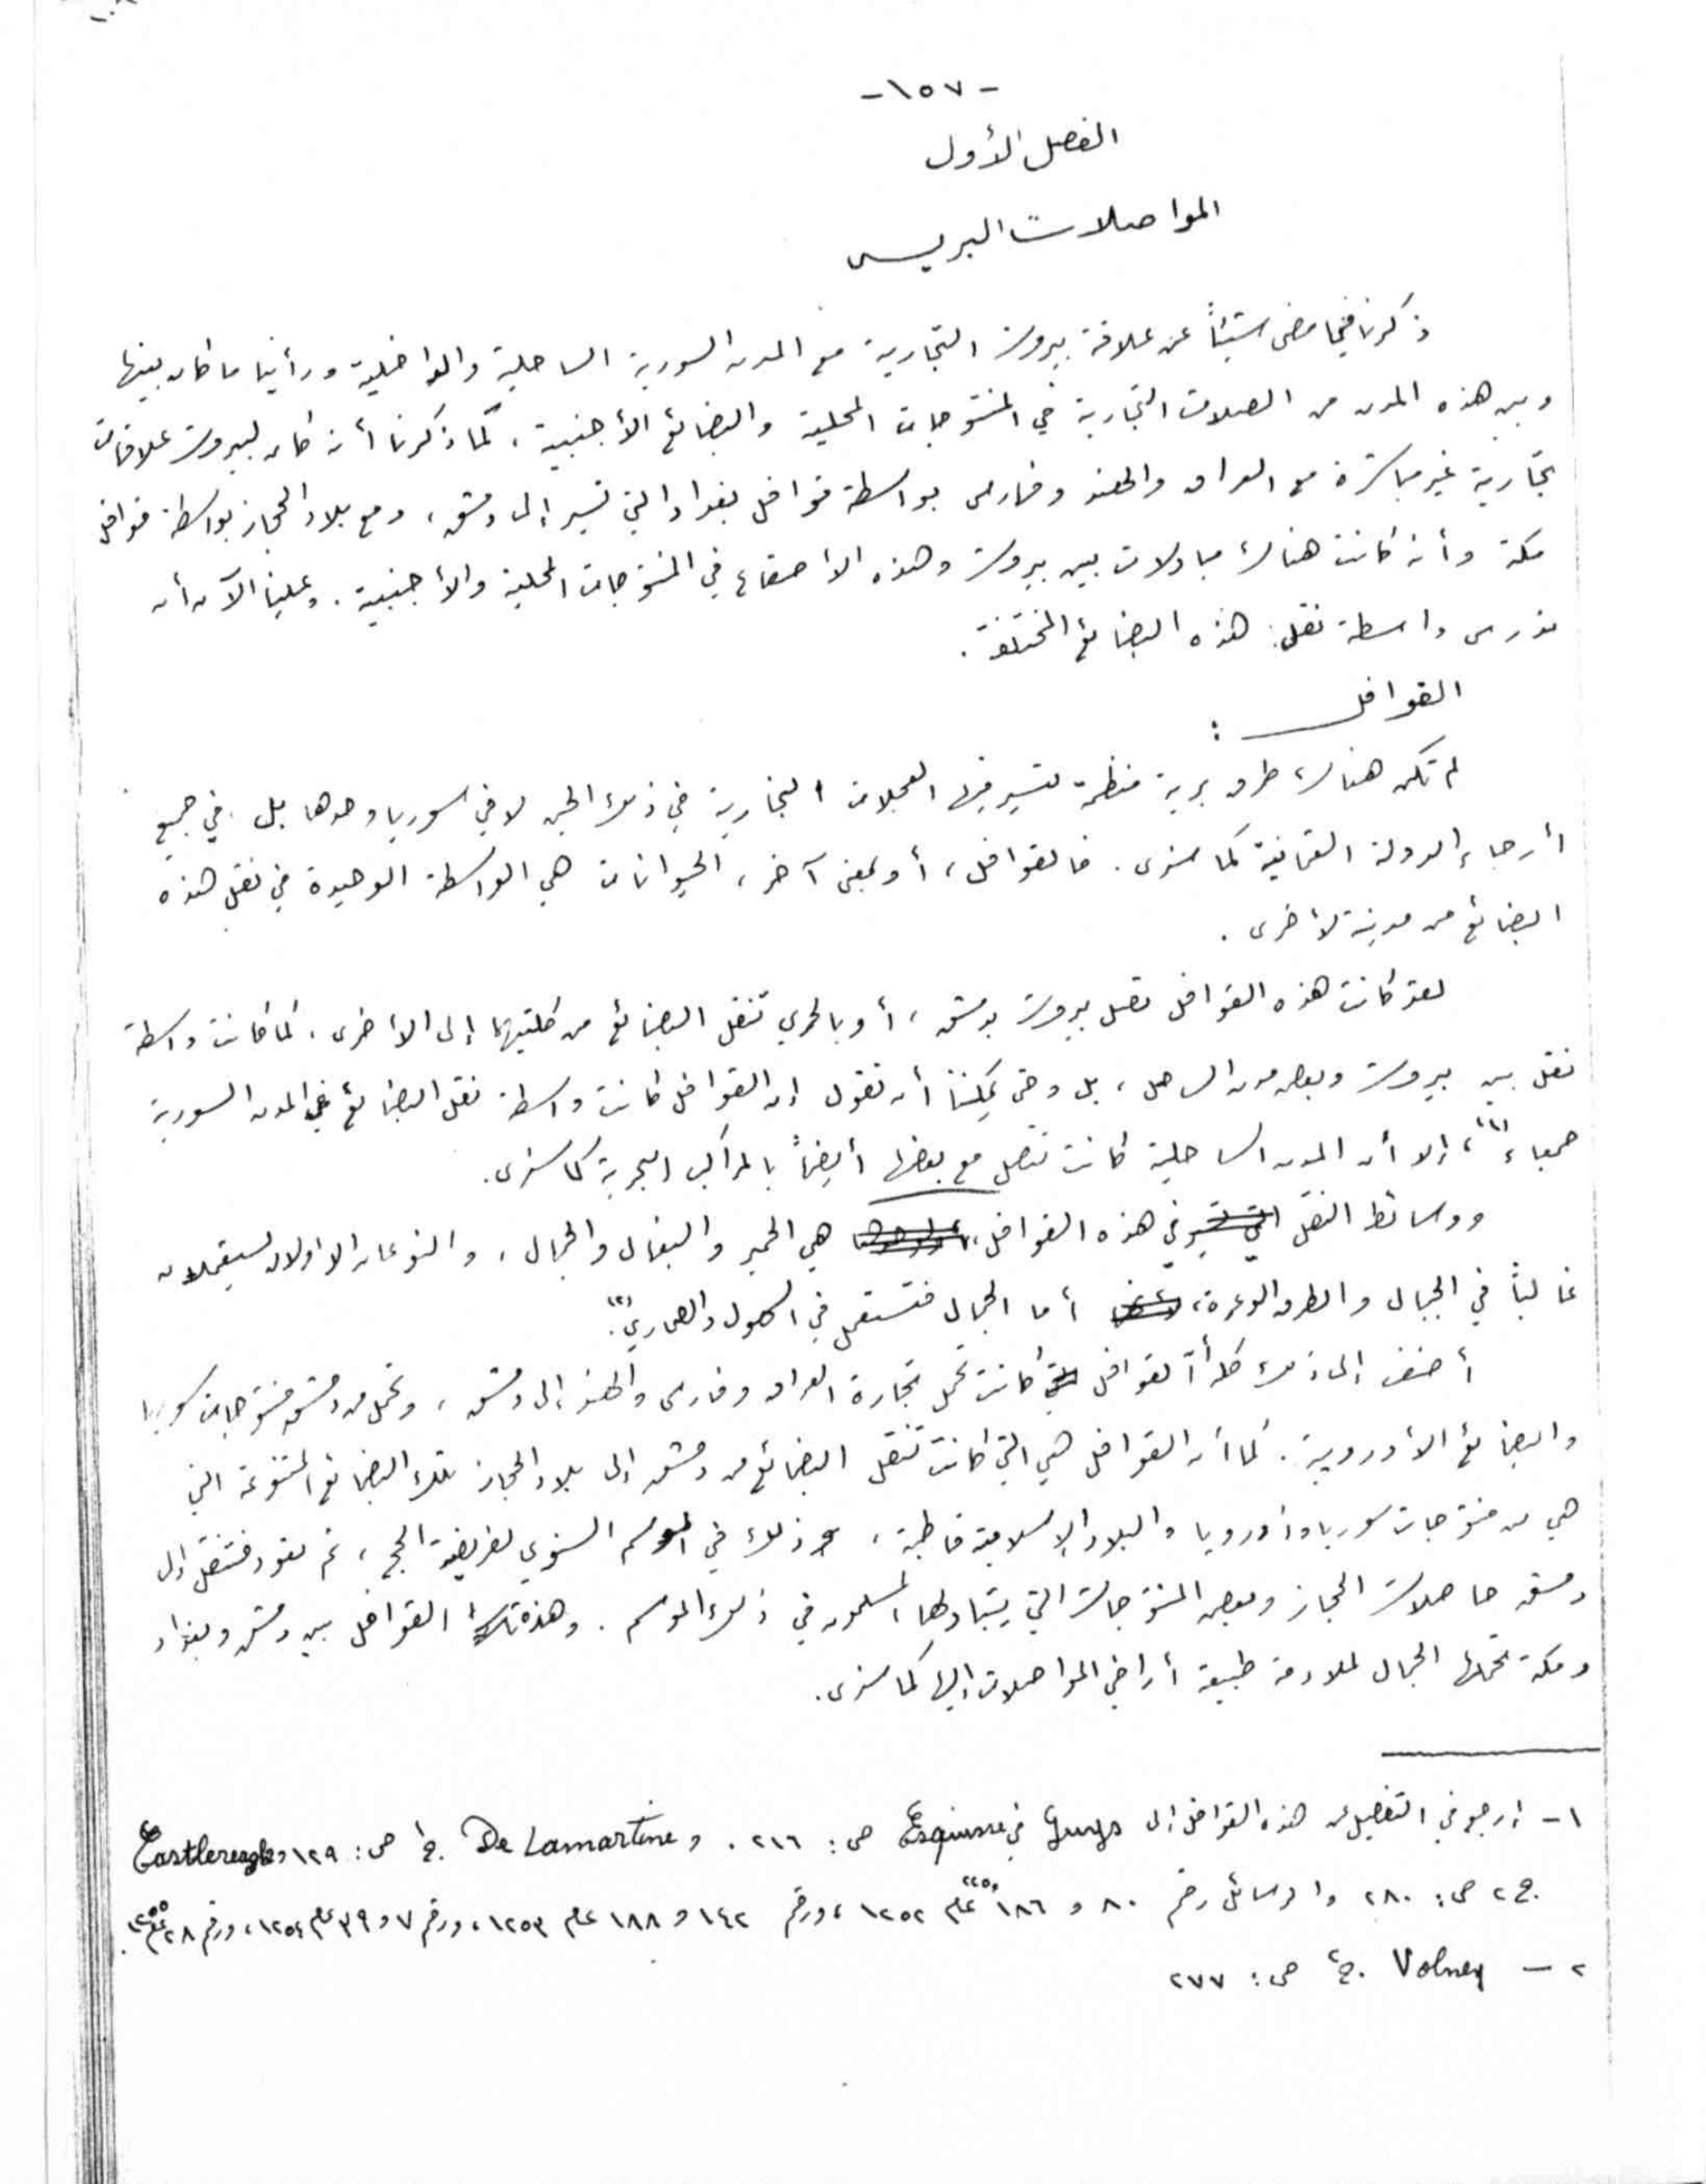 -١٥٧-
الفصل الأول
المواصلات البرية
ذكرنا فيما مضى شيئاً عن علاقة بيروت التجارية مع المدن السورية الساحلية والداخلية ورأينا ما كان بينها
وبين هذه المدن من الصلات التجارية في المنتوجات المحلية والبضائع الأجنبية، كما ذكرنا أنه كان لبيروت علاقات
تجارية غير مباشرة مع العراق والهند وفارس بواسطة قوافل بغداد التي تسير إلى دمشق، ومع بلاد الحجاز بواسطة قوافل
مكة وأنه كانت هناك مبادلات بين بيروت وهذه الاصقاع في المنتوجات المحلية والأجنبية. وعلينا الآن أن
ندرس واسطة نقل هذه البضائع المختلفة.
القوافل :
لم تكن هناك طرق برية منظمة تسير فيها العجلات التجارية في ذلك الحين لا في سوريا وحدها بل في جميع
أرجاء الدولة العثمانية كما سنرى. فالقوافل، أو بمعنى آخر، الحيوانات هي الواسطة الوحيدة في نقل هذه
البضائع من مدينة لأخرى.
لقد كانت هذه القوافل تصل بيروت بدمشق، أو بالحري تنقل البضائع من كلتيهما إلى الأخرى. كما كانت واسطة
نقل بين بيروت وبعض مدن الساحل، بل وحتى يمكننا أن نقول إن القوافل كانت واسطة نقل البضائع في المدن السورية
جمعاء"١"، إلا أن المدن الساحلية كانت تتصل مع بعضها أيضاً بالمراكب البحرية كما سنرى.
ووسائط النقل في هذه القوافل، هي الحمير والبغال والجمال، والنوعان الاولان يستعملان
غالباً في الجبال والطرق الوعرة، أما الجمال فتستعمل في السهول والصحاري"٢".
أضف إلى ذلك كله أن القوافل كانت تحمل تجارة العراق وفارس والهند إلى دمشق، وتحمل من دمشق منتوجات سوريا
والبضائع الأوروبية. كما أن القوافل هي التي كانت تنقل البضائع من دمشق إلى بلاد الحجاز تلك البضائع المتنوعة التي
هي من منتوجات سوريا وأوروبا والبلاد الإسلامية قاطبة، وذلك في الموسم السنوي لفريضة الحج، ثم تعود فتنقل إلى
دمشق حاصلات الحجاز وبعض المنتوجات التي يتبادلها المسلمون في ذلك الموسم. وهذه القوافل بين دمشق وبغداد
ومكة تحملها الجمال لملاءمة طبيعة أراضي المواصلات إليها كما سنرى.
١- إرجع في التفصيل عن هذه القوافل إلى Guys في Esquisse ص: ٢١٦. و De Lamartine ج١ ص: ١٢٩ و Castlereagh
ج٢ ص: ٢٨٠ والرسائل رقم ٨٠ و ١٨٦ عام ١٢٥٢، ورقم ١٤٢ و ١٨٨ عام ١٢٥٣، ورقم ٧ و ٣٩ عام ١٢٥٤، ورقم ٢٨ عام ١٢٥٥.
٢- Volney ج٢ ص: ٢٧٧